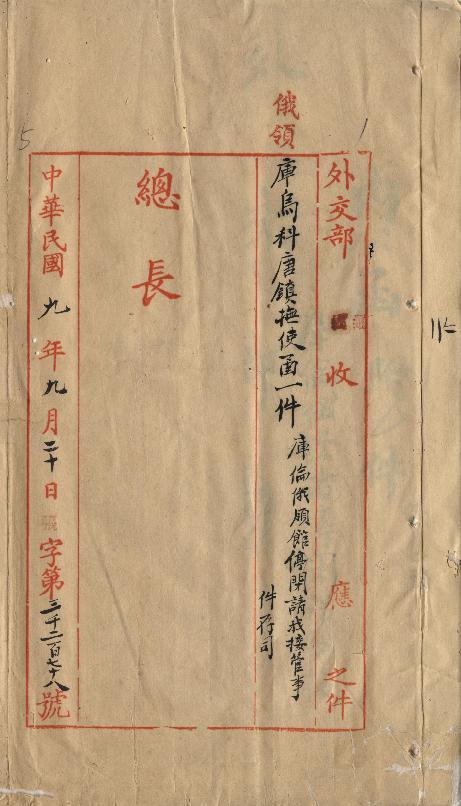 俄領
外交部 收 應 之件
庫烏科唐鎮撫使函一件
庫倫俄領館停閉請我接管事
件存司
總長
中華民國九年九月二十日 字第三千二百七十八號
5